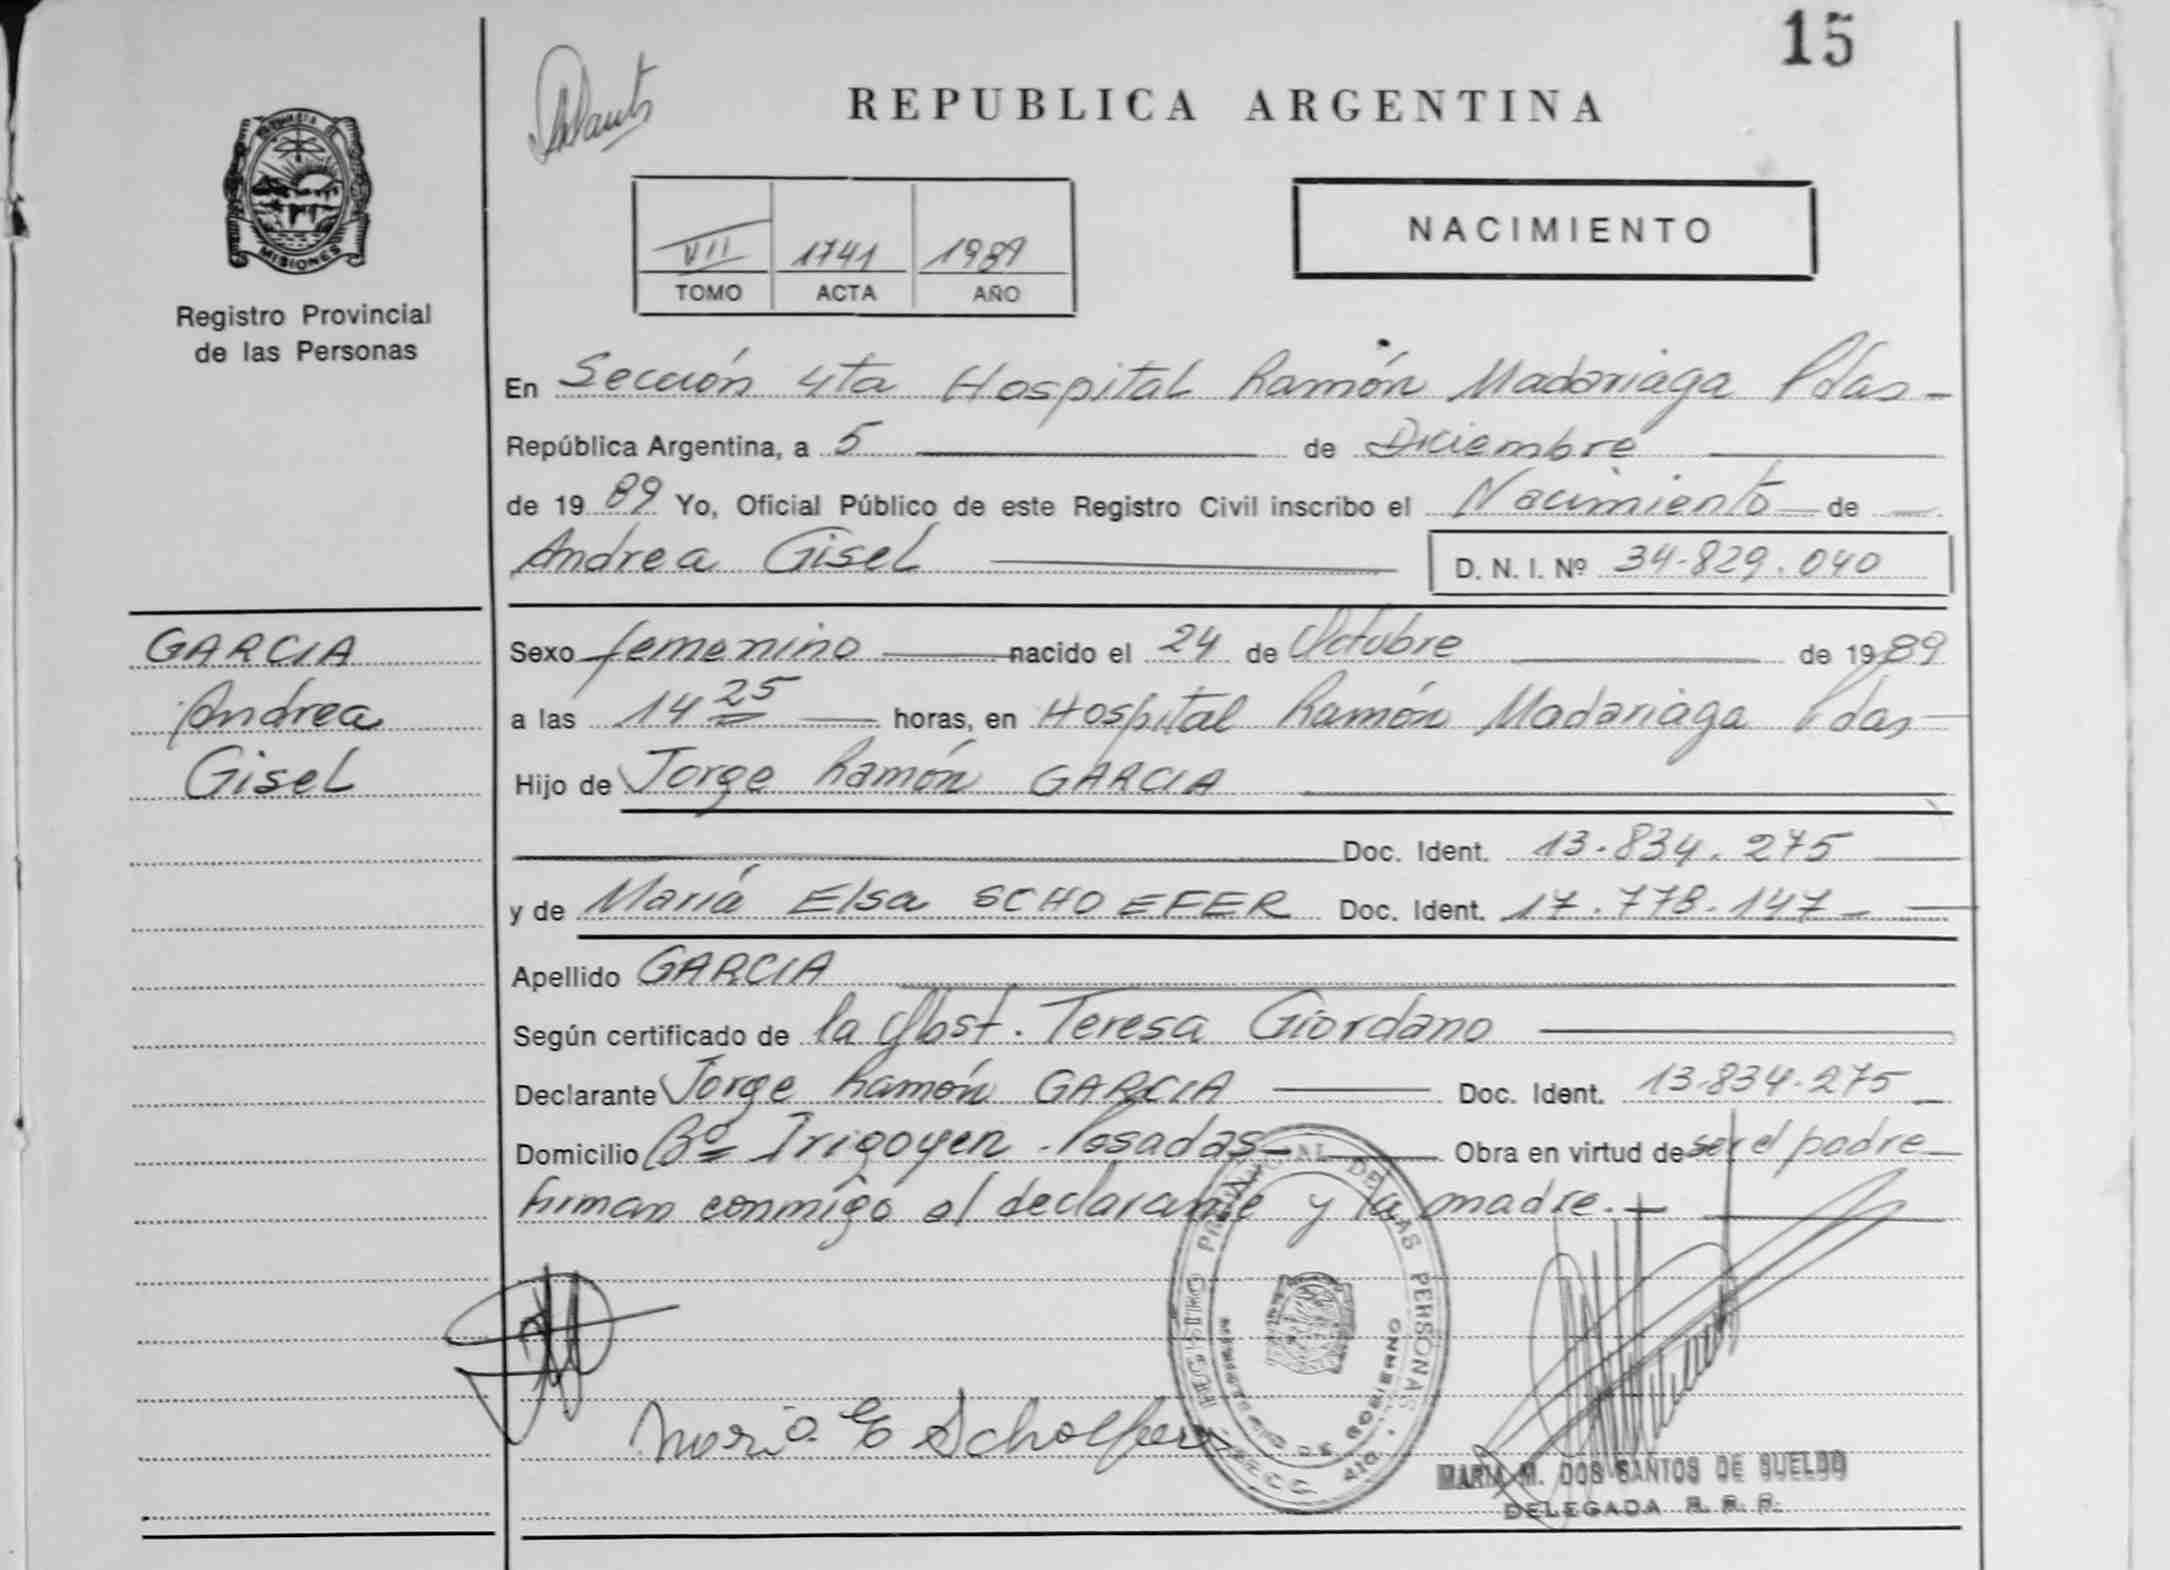 15
REPUBLICA ARGENTINA
NACIMIENTO
VII 1741 1989
TOMO ACTA AÑO
MISIONES
Registro Provincial
de las Personas
En Sección 4ta Hospital Ramón Madariaga Pdas-
República Argentina, a 5 de Diciembre
de 1989 Yo, Oficial Público de este Registro Civil inscribo el Nacimiento de
Andrea Gisel D. N. I. Nº 34-829.040
GARCIA
Andrea
Gisel
Sexo femenino nacido el 24 de Octubre de 1989
a las 14 25 horas, en Hospital Ramón Madariaga Pdas
Hijo de Jorge Ramón GARCIA
Doc. Ident. 13.834.275
y de María Elsa SCHOEFER Doc. Ident. 17.778.147-
Apellido GARCIA
Según certificado de la Obst. Teresa Giordano
Declarante Jorge Ramón GARCIA Doc. Ident. 13.834.275
Domicilio Bº Irigoyen - Posadas- Obra en virtud de ser el padre
firman conmigo el declarante y la madre.-
REGISTRO PROVINCIAL DE LAS PERSONAS
MINISTERIO DE GOBIERNO
María E Schoeffer
MARIA M. DOS SANTOS DE SUELDO
DELEGADA R. P. P.